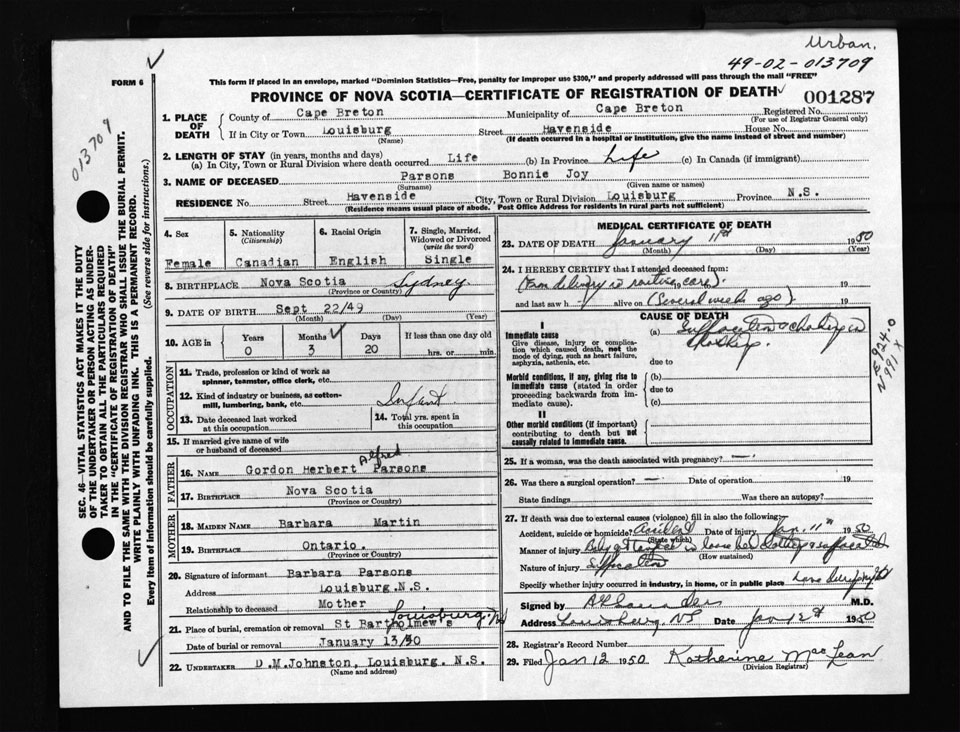 Urban.
49-02-013709
FORM 6
This form if placed in an envelope, marked "Dominion Statistics—Free, penalty for improper use $300," and properly addressed will pass through the mail "FREE"
PROVINCE OF NOVA SCOTIA—CERTIFICATE OF REGISTRATION OF DEATH
001287
013709
SEC. 46—VITAL STATISTICS ACT MAKES IT THE DUTY
OF THE UNDERTAKER OR PERSON ACTING AS UNDER-
TAKER TO OBTAIN ALL THE PARTICULARS REQUIRED
IN THE "CERTIFICATE OF REGISTRATION OF DEATH"
AND TO FILE THE SAME WITH THE DIVISION REGISTRAR WHO SHALL ISSUE THE BURIAL PERMIT.
WRITE PLAINLY WITH UNFADING INK. THIS IS A PERMANENT RECORD.
Every item of information should be carefully supplied. (See reverse side for instructions.)
1. PLACE OF DEATH
County of Cape Breton Municipality of Cape Breton Registered No.
(For use of Registrar General only)
If in City or Town Louisburg Street Havenside House No.
(Name) (If death occurred in a hospital or institution, give the name instead of street and number)
2. LENGTH OF STAY (in years, months and days)
(a) In City, Town or Rural Division where death occurred Life (b) In Province Life (c) In Canada (if immigrant)
3. NAME OF DECEASED Parsons Bonnie Joy
(Surname) (Given name or names)
RESIDENCE No. Street Havenside City, Town or Rural Division Louisburg Province N.S.
(Residence means usual place of abode. Post Office Address for residents in rural parts not sufficient)
4. Sex
Female
5. Nationality
(Citizenship)
Canadian
6. Racial Origin
English
7. Single, Married,
Widowed or Divorced
(write the word)
Single
8. BIRTHPLACE Nova Scotia Sydney.
(Province or Country)
9. DATE OF BIRTH Sept 22/49
(Month) (Day) (Year)
10. AGE in Years Months Days If less than one day old
0 3 20 hrs. or min.
OCCUPATION
11. Trade, profession or kind of work as
spinner, teamster, office clerk, etc.
12. Kind of industry or business, as cotton-
mill, lumbering, bank, etc. Infant
13. Date deceased last worked
at this occupation
14. Total yrs. spent in
this occupation
15. If married give name of wife
or husband of deceased
FATHER
16. NAME Gordon Herbert Alfred Parsons
17. BIRTHPLACE Nova Scotia
(Province or Country)
MOTHER
18. MAIDEN NAME Barbara Martin
19. BIRTHPLACE Ontario.
(Province or Country)
20. Signature of informant Barbara Parsons
Address Louisburg.N.S.
Relationship to deceased Mother
21. Place of burial, cremation or removal St Bartholmew's Louisburg.
Date of burial or removal January 13/50
22. UNDERTAKER D.M.Johnston, Louisburg. N.S.
(Name and address)
MEDICAL CERTIFICATE OF DEATH
23. DATE OF DEATH January 11th 1950
(Month) (Day) (Year)
24. I HEREBY CERTIFY that I attended deceased from:
(From delivery in routine care). 19 19
and last saw h alive on (Several weeks ago). 19
CAUSE OF DEATH
I
Immediate cause
Give disease, injury or complica-
tion which caused death, not the
mode of dying, such as heart failure,
asphyxia, asthenia, etc.
(a) Suffocation
due to
Morbid conditions, if any, giving rise to
immediate cause (stated in order
proceeding backwards from im-
mediate cause).
(b)
due to
(c)
II
Other morbid conditions (if important)
contributing to death but not
causally related to immediate cause.
E924.0
N991X
25. If a woman, was the death associated with pregnancy? —
26. Was there a surgical operation? — Date of operation 19
State findings Was there an autopsy?
27. If death was due to external causes (violence) fill in also the following:
Accident, suicide or homicide? Accident Date of injury Jan. 11th 1950
(State which)
Manner of injury Baby in loose bed clothing & suffocated
(How sustained)
Nature of injury Suffocation
Specify whether injury occurred in industry, in home, or in public place
Signed by M.D.
Address Louisburg. NS Date Jan 12th 1950
28. Registrar's Record Number
29. Filed Jan 12 1950 Katherine MacLean
(Division Registrar)